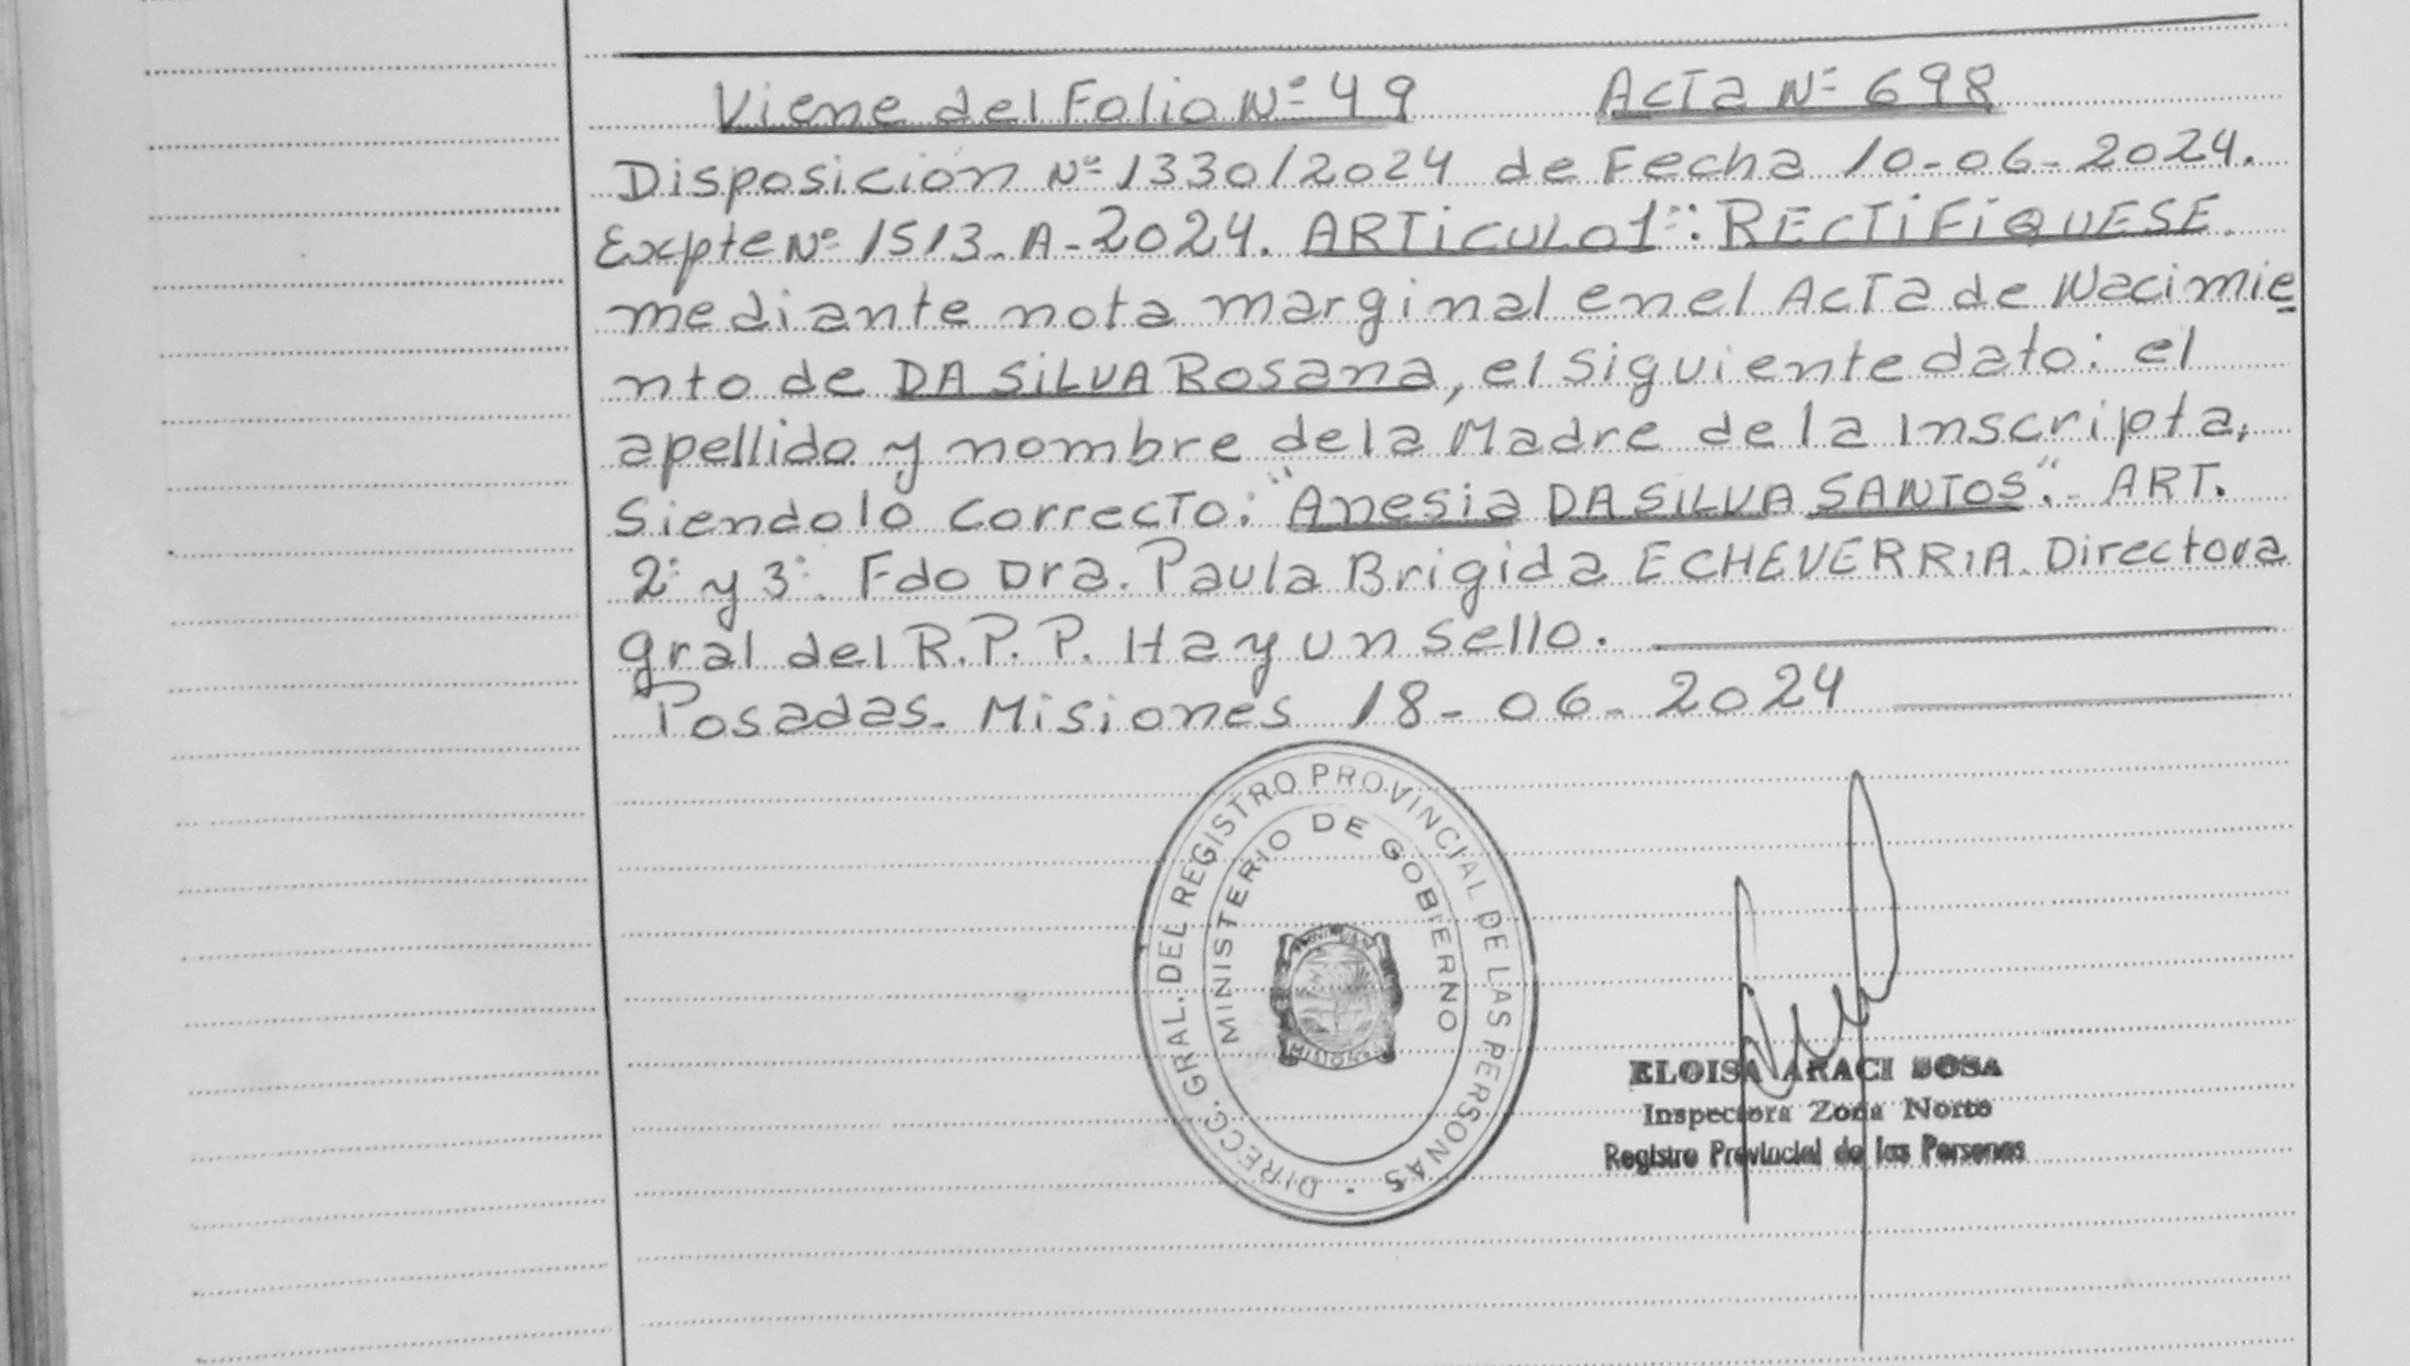 Viene del Folio Nº 49 Acta Nº 698
Disposición Nº 1330/2024 de Fecha 10-06-2024.
Expte Nº 1513-A-2024. ARTiCULO 1º: RECTiFiQUESE.
mediante nota marginal en el Acta de Nacimie
nto de DA SiLVA Rosana, el siguiente dato: el
apellido y nombre de la Madre de la Inscripta,
Siendo lo Correcto: "Anesia DA SILVA SANTOS".- ART.
2º y 3º. Fdo Dra. Paula Brigida ECHEVERRIA. Directora
gral del R.P.P. Hay un sello.
Posadas. Misiones 18-06-2024
DIRECC. GRAL. DEL REGISTRO PROVINCIAL DE LAS PERSONAS
MINISTERIO DE GOBIERNO
MISIONES
ELOISA ARACI SOSA
Inspectora Zona Norte
Registro Provincial de las Personas